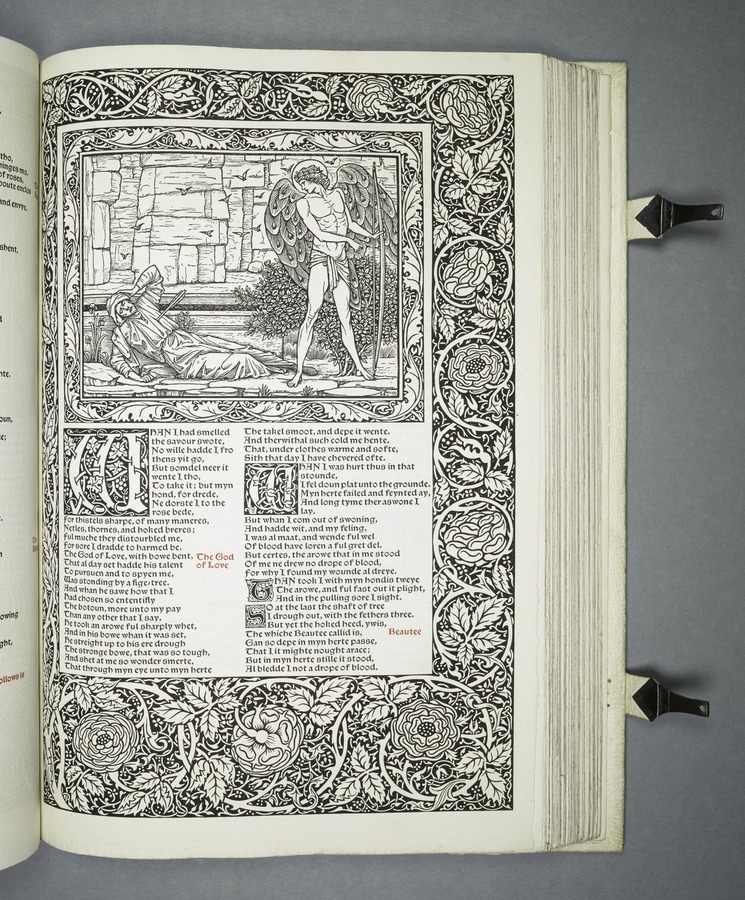 tho,
of roses,
and envye,
shent,
nte.
oun,
owing
ght,
ollows is
WHAN I had smelled
the savour swote,
No wille hadde I fro
thens yit go,
But somdel neer it
wente I tho,
To take it; but myn
hond, for drede,
Ne dorste I to the
rose bede,
For thistels sharpe, of many maneres,
Netles, thornes, and hoked breres;
Ful muche they distourbled me,
For sore I dradde to harmed be.
The God of Love, with bowe bent,
That al day set hadde his talent
To pursuen and to spyen me,
Was stonding by a fige-tree.
And whan he saw how that I
Had chosen so ententifly
The botoun, more unto my pay
Than any other that I say,
He took an arowe ful sharply whet,
And in his bowe whan it was set,
He streight up to his ere drough
The stronge bowe, that was so tough,
And shet at me so wonder smerte,
That through myn eye unto myn herte
The God
of Love
The takel smoot, and depe it wente.
And therwithal such cold me hente,
That, under clothes warme and softe,
Sith that day I have chevered ofte.
WHAN I was hurt thus in that
stounde,
I fel doun plat unto the grounde.
Myn herte failed and feynted ay,
And long tyme ther aswone I
lay.
But whan I com out of swoning,
And hadde wit, and my feling,
I was al maat, and wende ful wel
Of blood have loren a ful gret del.
But certes, the arowe that in me stood
Of me ne drew no drope of blood,
For-why I found my wounde al dreye.
THAN took I with myn hondis tweye
The arowe, and ful fast out it plight,
And in the pulling sore I sight.
SO at the last the shaft of tree
I drough out, with the fethers three.
But yet the hoked heed, ywis,
The whiche Beautee callid is,
Gan so depe in myn herte passe,
That I it mighte nought arace;
But in myn herte stille it stood,
Al bledde I not a drope of blood.
Beautee